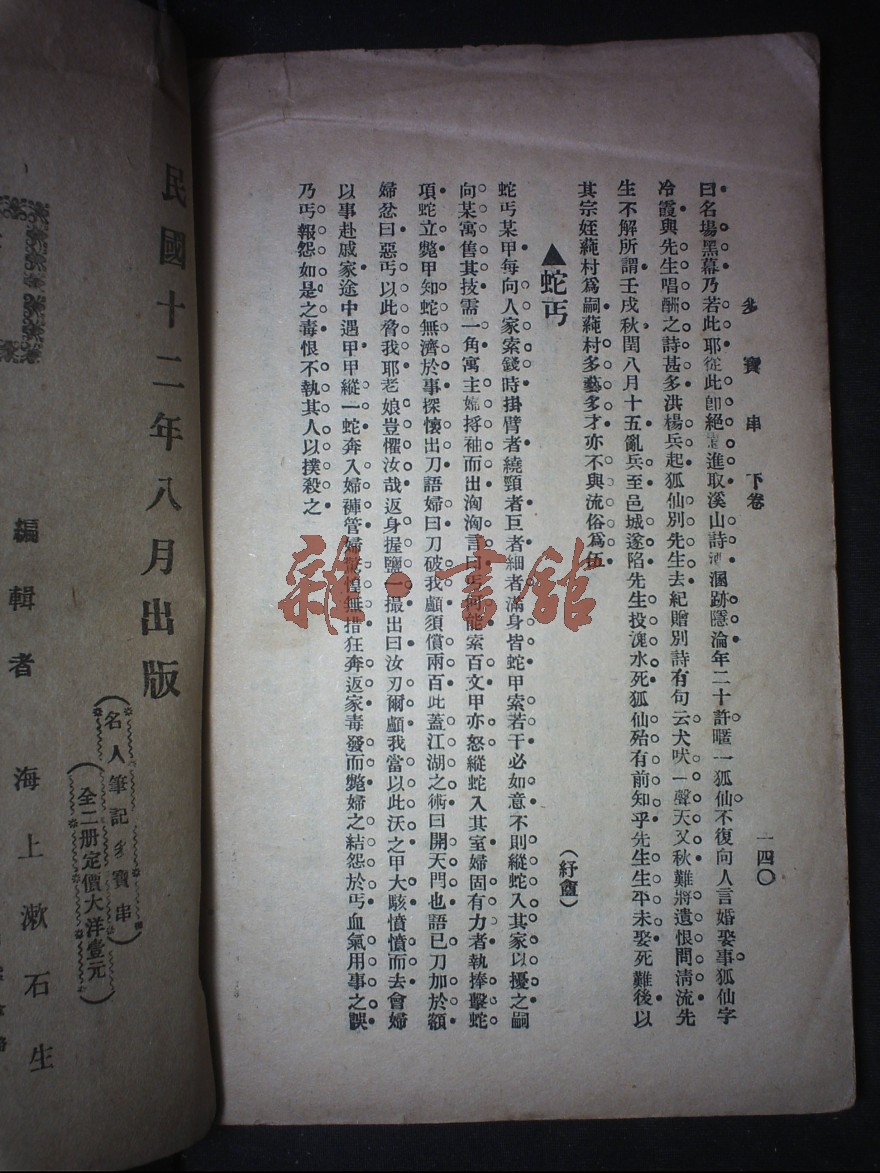 多寶串 下卷
一四〇
曰名場黑幕乃若此耶從此卽絕意進取溪山詩酒溷跡隱淪年二十許暱一狐仙不復向人言婚娶事狐仙字
冷霞與先生唱酬之詩甚多洪楊兵起狐仙別先生去紀贈別詩有句云犬吠一聲天又秋難將遺恨問淸流先
生不解所謂壬戌秋閏八月十五亂兵至邑城遂陷先生投溾水死狐仙殆有前知乎先生生平未娶死難後以
其宗姪蒓村爲嗣蒓村多藝多才亦不與流俗爲伍
▲蛇丐
(紓盦)
蛇丐某甲每向人家索錢時掛臂者繞頸者巨者細者滿身皆蛇甲索若干必如意不則縱蛇入其家以擾之嗣
向某寓售其技需一角寓主婦捋袖而出洶洶言曰丐何能索百文甲亦怒縱蛇入其室婦固有力者執捧擊蛇
項蛇立斃甲知蛇無濟於事探懷出刀語婦曰刀破我顱須償兩百此蓋江湖之術曰開天門也語已刀加於額
婦忿曰惡丐以此脅我耶老娘豈懼汝哉返身握鹽一撮出曰汝刃爾顱我當以此沃之甲大駭憤憤而去會婦
以事赴戚家途中遇甲甲縱一蛇奔入婦褲管婦驚惶無措狂奔返家毒發而斃婦之結怨於丐血氣用事之誤
乃丐報怨如是之毒恨不執其人以撲殺之
民國十二年八月出版
(名人筆記多寶串)
(全二册定價大洋壹元)
編輯者 海上漱石生
雜·書館